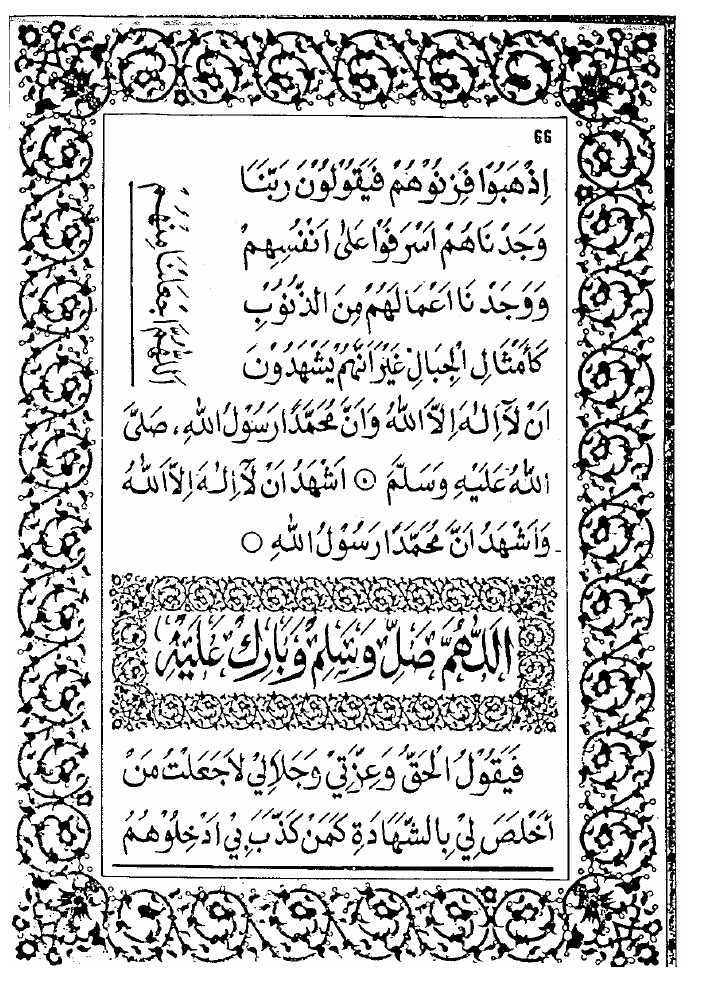 66
اِذْهَبُوْا فَزِنُوْهُمْ فَيَقُوْلُوْنَ رَبَّنَا
وَجَدْنَاهُمْ اَسْرَفُوْا عَلٰى اَنْفُسِهِمْ
وَوَجَدْنَا اَعْمَالَهُمْ مِنَ الذُّنُوْبِ
كَأَمْثَالِ الْجِبَالِ غَيْرَ اَنَّهُمْ يَشْهَدُوْنَ
اَنْ لَآ اِلٰهَ اِلَّا اللهُ وَاَنَّ مُحَمَّدًا رَسُوْلُ اللهِ، صَلَّى
اللهُ عَلَيْهِ وَسَلَّمَ ۞ اَشْهَدُ اَنْ لَآ اِلٰهَ اِلَّا اللهُ
وَاَشْهَدُ اَنَّ مُحَمَّدًا رَسُوْلُ اللهِ ○
اَللّٰهُمَّ صَلِّ وَسَلِّمْ وَبَارِكْ عَلَيْهِ
فَيَقُوْلُ الْحَقُّ وَعِزَّتِيْ وَجَلَالِيْ لَاجَعَلْتُ مَنْ
أَخْلَصَ لِيْ بِالشَّهَادَةِ كَمَنْ كَذَّبَ بِيْ اَدْخِلُوْهُمُ
اَللّٰهُمَّ اجْعَلْنَا مِنْهُمْ